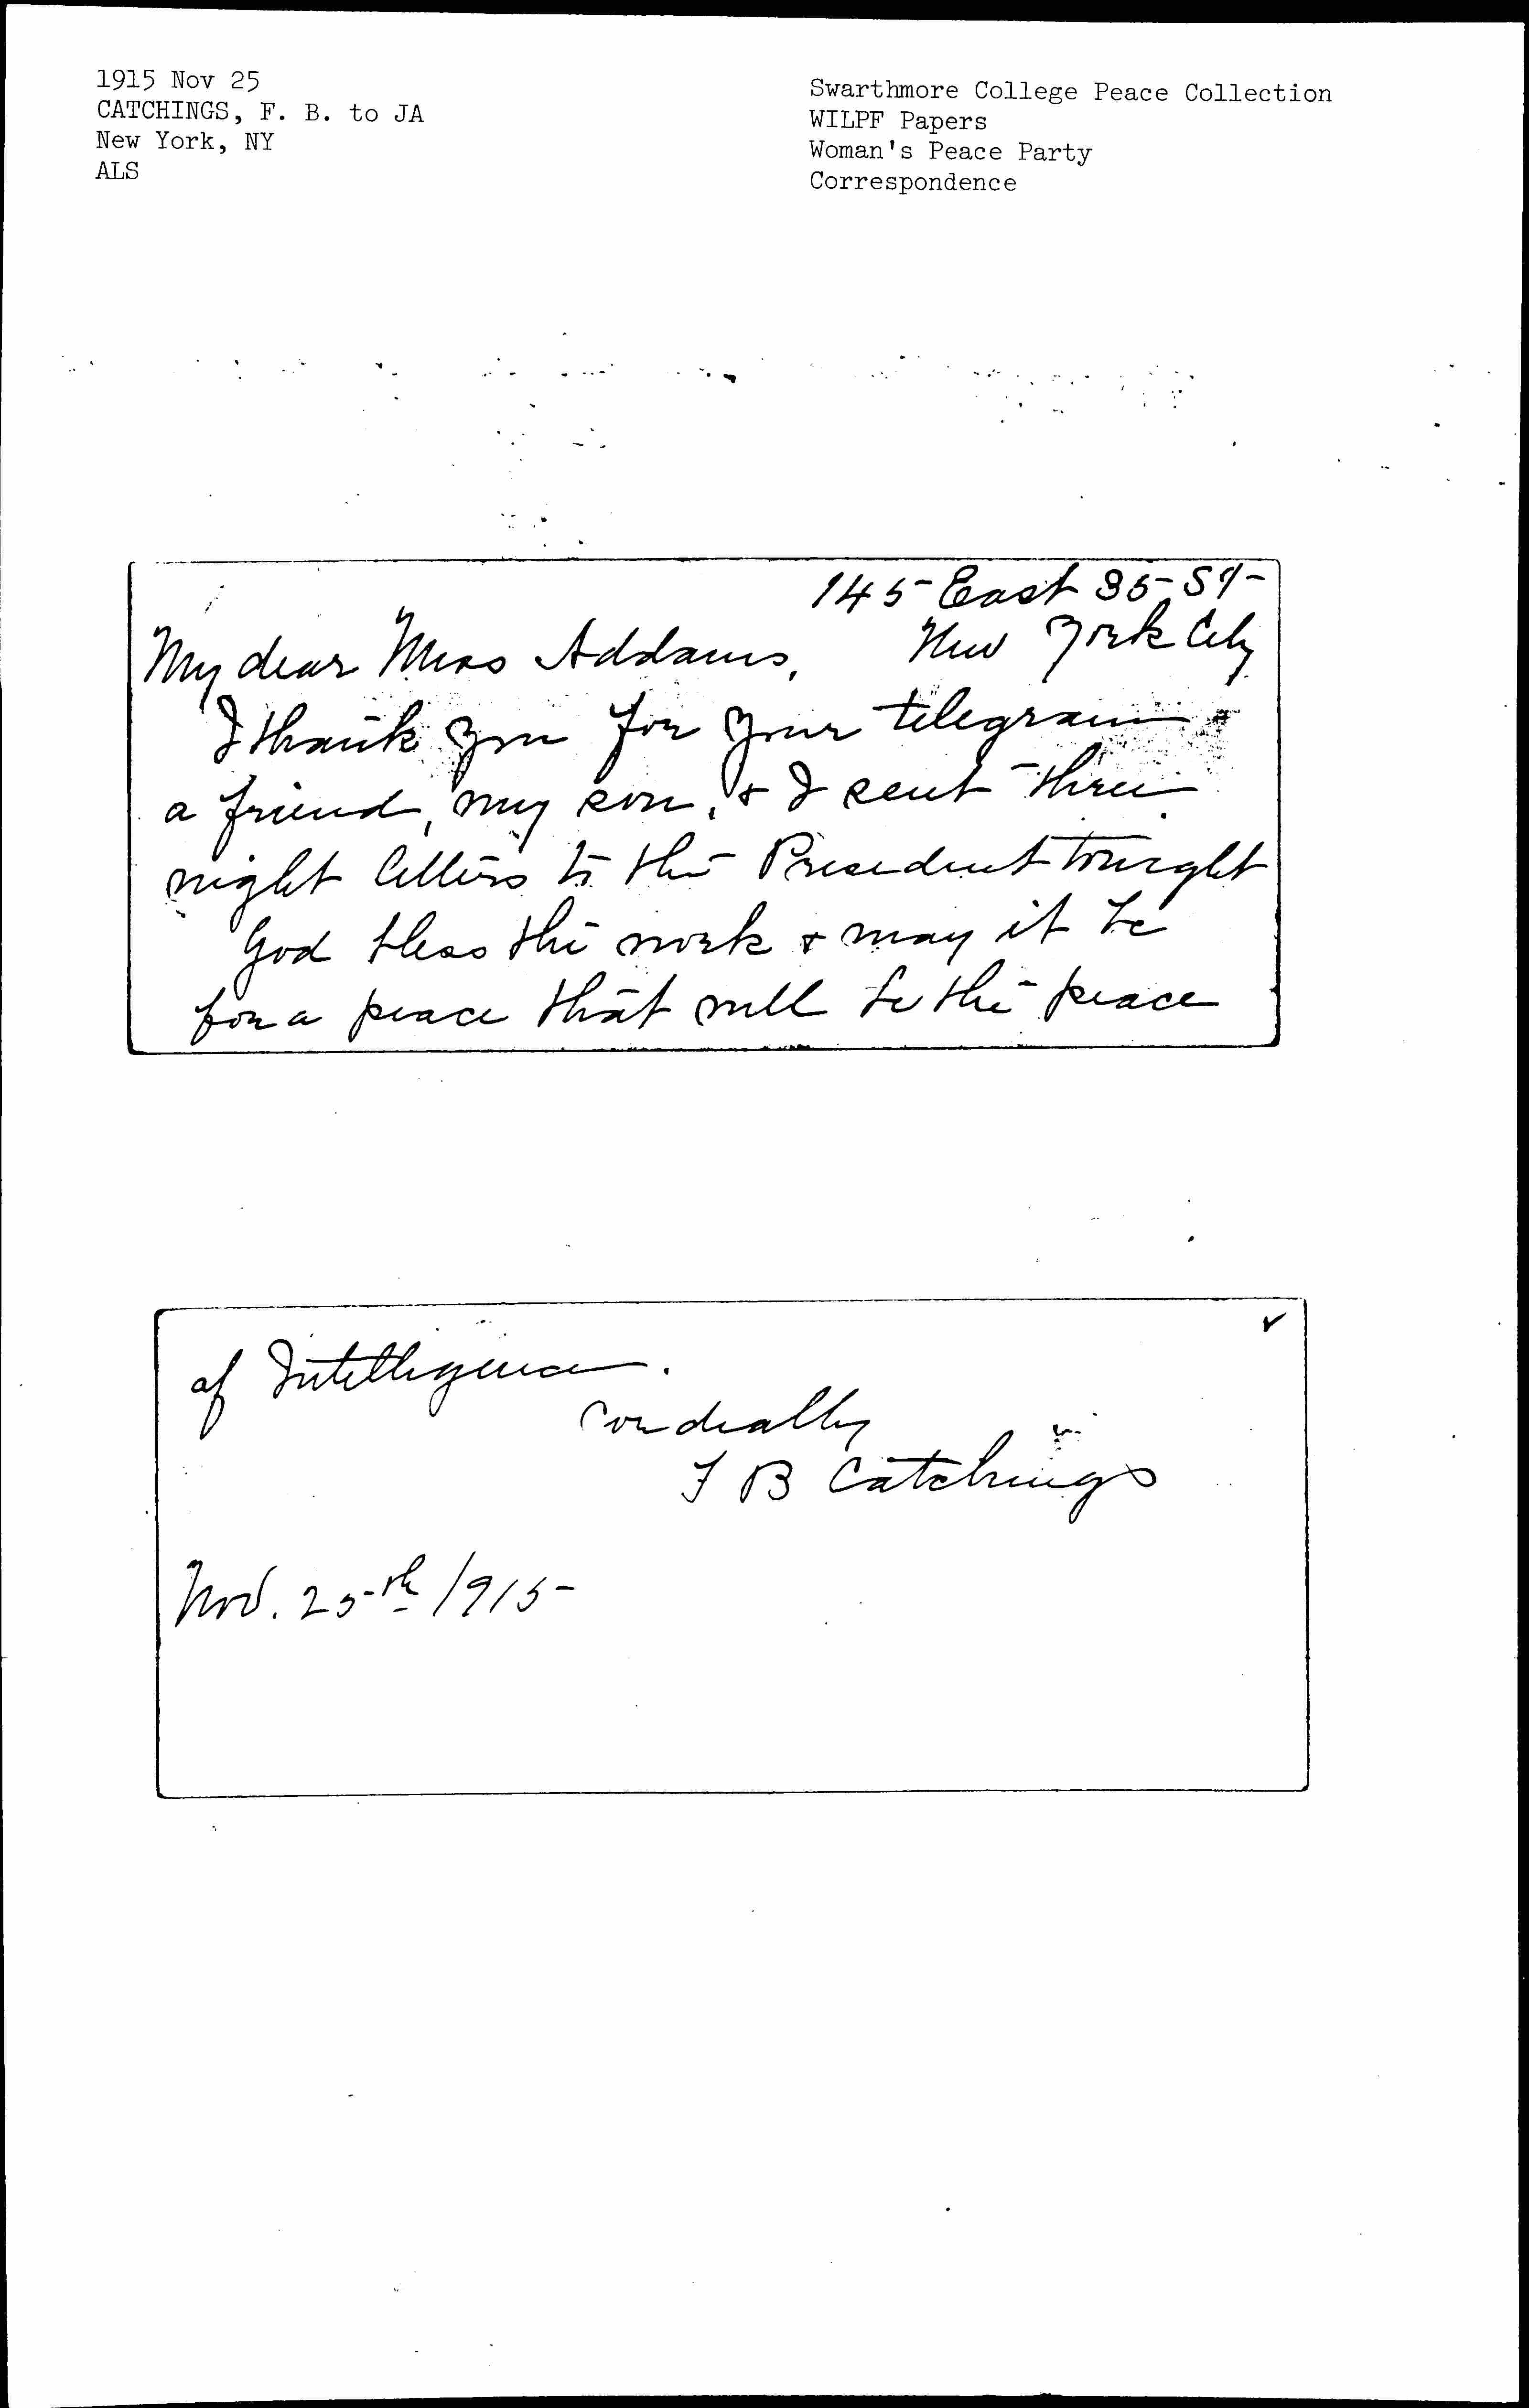 1915 Nov 25
CATCHINGS, F. B. to JA
New York, NY
ALS
Swarthmore College Peace Collection
WILPF Papers
Woman's Peace Party
Correspondence
145 East 35 St
New York City
My dear Miss Addams,
I thank you for your telegram &
a friend, my son, & I sent three
night letters to the President tonight
God bless the work & may it be
for a peace that will be the peace
of Intelligence.
Cordially
F B Catchings
Nov. 25th 1915